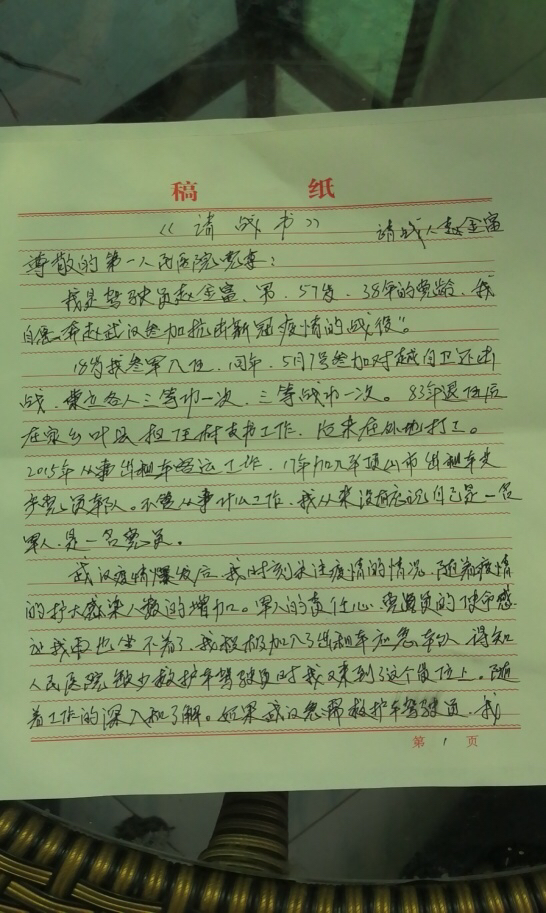 稿 纸
《请战书》 请战人赵金富
尊敬的第一人民医院党委：
我是驾驶员赵金富、男、57岁、38年的党龄、我
自愿奔赴武汉参加抗击新冠疫情的战役。
18岁我参军入伍、同年、5月7号参加对越自卫还击
战、荣立个人三等功一次、三等战功一次。83年退伍后
在家乡叶县担任村支书工作、后来在外地打工。
2015年从事出租车营运工作、17年加入平顶山市出租车
党员车队。不管从事什么工作、我从来没有忘记自己是一名
军人、是一名党员。
武汉疫情爆发后、我时刻关注疫情的情况、随着疫情
的扩大感染人数的增加。军人的责任心、党员的使命感
让我再也坐不着了、我积极加入了出租车应急车队、得知
人民医院缺少救护车驾驶员时我又来到了这个岗位上。随
着工作的深入和了解。如果武汉急需救护车驾驶员、我
第 1 页